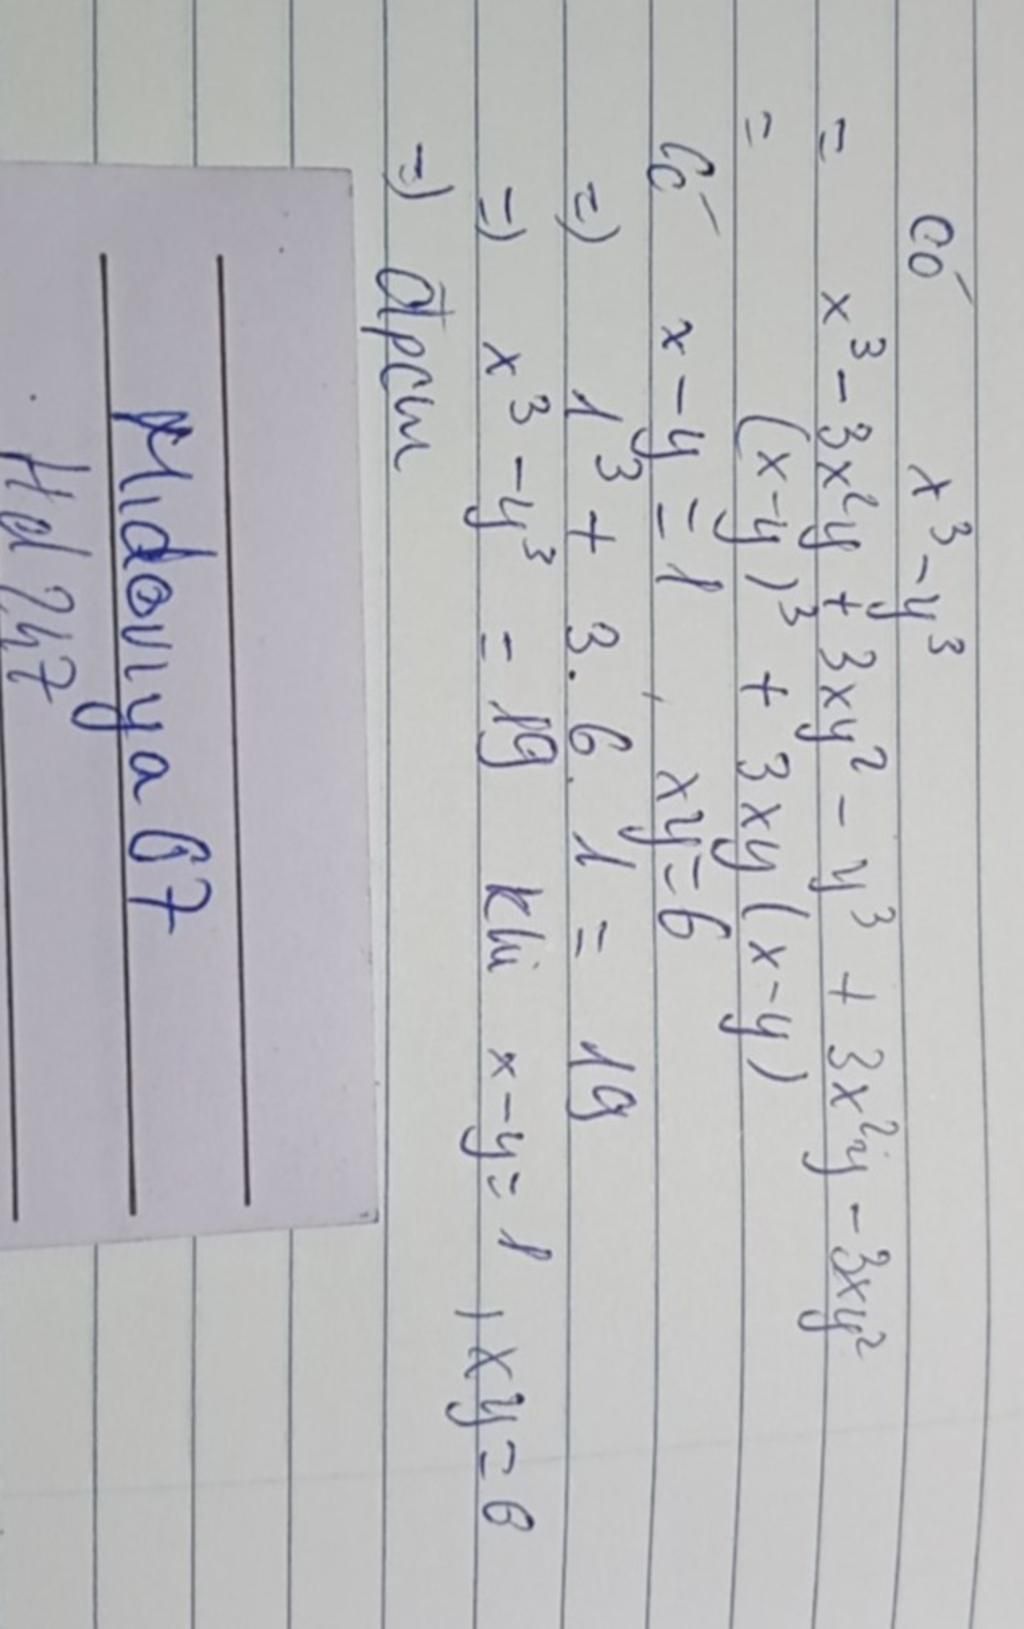 Có x³ - y³
= x³ - 3x²y + 3xy² - y³ + 3x²y - 3xy²
= (x-y)³ + 3xy(x-y)
Có x - y = 1, xy = 6
=) 1³ + 3.6.1 = 19
=) x³ - y³ = 19 khi x - y = 1, xy = 6
=) đpcm
Midoviya67
Hd247